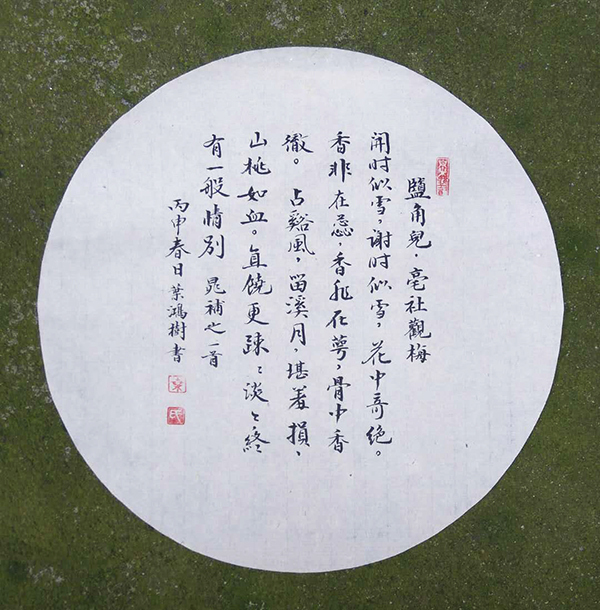 鹽角兒，亳社觀梅
開时似雪，谢时似雪，花中奇绝。
香非在蕊，香非在萼，骨中香
徹。占谿風，留溪月，堪羞損、
山桃如血。直饒更疎〻淡〻終
有一般情别 晁補之一首
丙申春日葉鴻樹書
氏